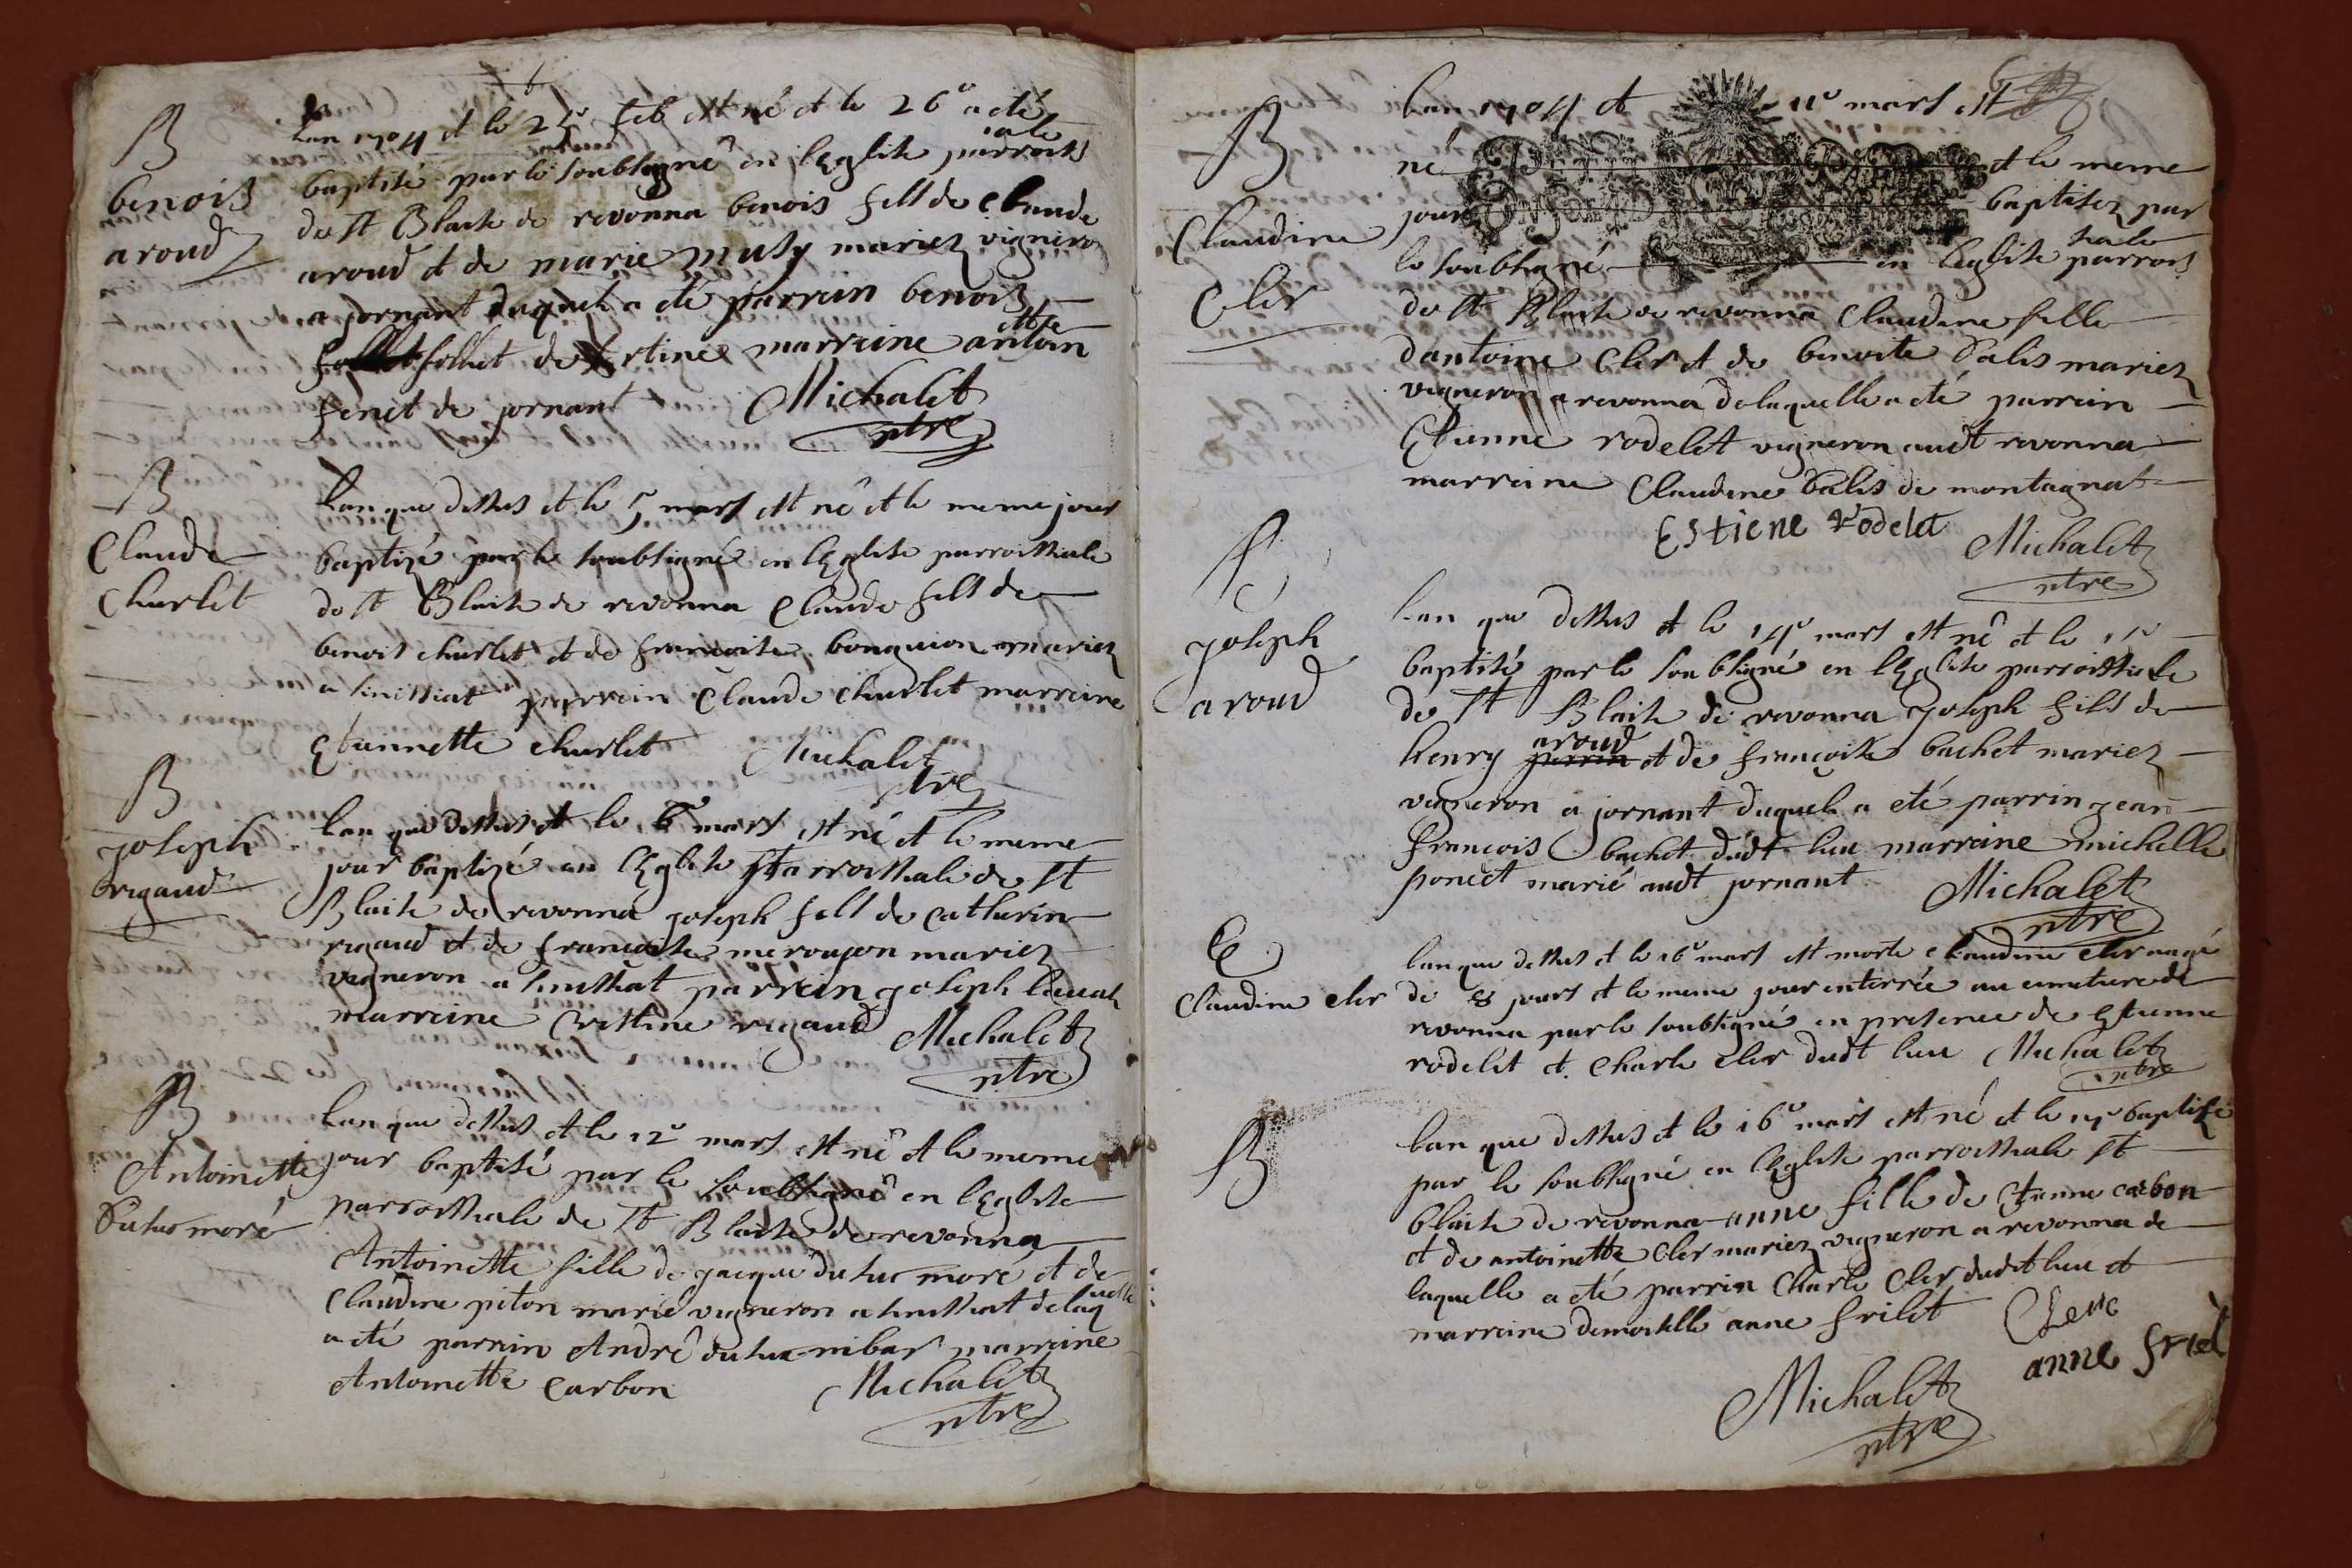 B
benois
aroud
Lan 1704 et le 25e feb est né et le 26e a eté
baptisé par le soubsigné en lEglise parrois
ale
de st Blaise de revonna benois fils de Claude
aroud et de marie musy mariez vigneron
a jornant duquel a eté parrein benois
follet de marreine antoin
ette
de jornant Michalet
ptre
B
Claude
Charlet
Lan que dessus et le 5 mars est né et le meme jour
baptizé par le soubsigné en lEglise parroissiale
de st Blaise de revonna Claude fils de
benoit charlet et de francoise mariez
a simissiat parrein Claude charlet marreine
Etiennette charlet Michalet
ptre
B
joseph
rigaud
Lan que dessus et le 6e mars est né et le meme
jour baptizé en lEglise Parroissiale de st
Blaise de revonna joseph fils de Catherin
rigaud et de francoise meroujon mariez
vigneron a simissiat parrein joseph
marreine Cristine rigaud Michalet
ptre
B
Antoinette
Dutuc moré
Lan que dessus et le 12e mars est né et le meme
jour baptisé par le soubsigné en lEglise
parroissiale de st Blaise de revonna
Antoinette fille de jacque dutuc moré et de
Claudine piton marié vigneron a simissiat delaq
uelle
a eté parrein André dutuc nibas marreine
Antoinette Carbon Michalet
ptre
6
B
Claudine
Cler
Lan 1704 et 11e mars est
né et le meme
jour baptisez par
le soubsigné en leglise parrois
siale
de st Blaise de revonna Claudine fille
dantoine Cler et de benoite Dalis mariez
vigneron a revonna delaquelle a eté parrein
Etienne rodelet vigneron audt revonna
marreine Claudine Dalis de montagnat
Estiene rodelet
Michalet
ptre
B
joseph
aroud
Lan que dessus et le 14e mars est né et le 15e
baptisé par le soubsigné en lEglise parroissiale
de st Blaise de revonna joseph fils de
aroud
henry perrin et de françoise bachet mariez
vigneron a jornant duquel a eté parrin jean
francois bachet dudt lieu marreine michelle
poncet marié audt jornant Michalet
ptre
E
Claudine cler
Lan que dessus et le 16e mars est morte claudine cler
de 8 jours et le meme jour enterrée au cimetiere de
revonna par le soubsigné en presence de Etienne
rodelet et Charle cler dudt lieu Michalet
ptre
B
Lan que dessus et le 16e mars est né et le 17e baptisée
par le soubsigné en lEglise parroissiale st
blaise de revonna anne fille de Etienne carbon
et de antoinette Cler mariez vigneron a revonna de
laquelle a eté parrin Charle Cler dudt lieu et
marreine demoiselle anne frilet
Clerc
anne friel
Michalet
ptre